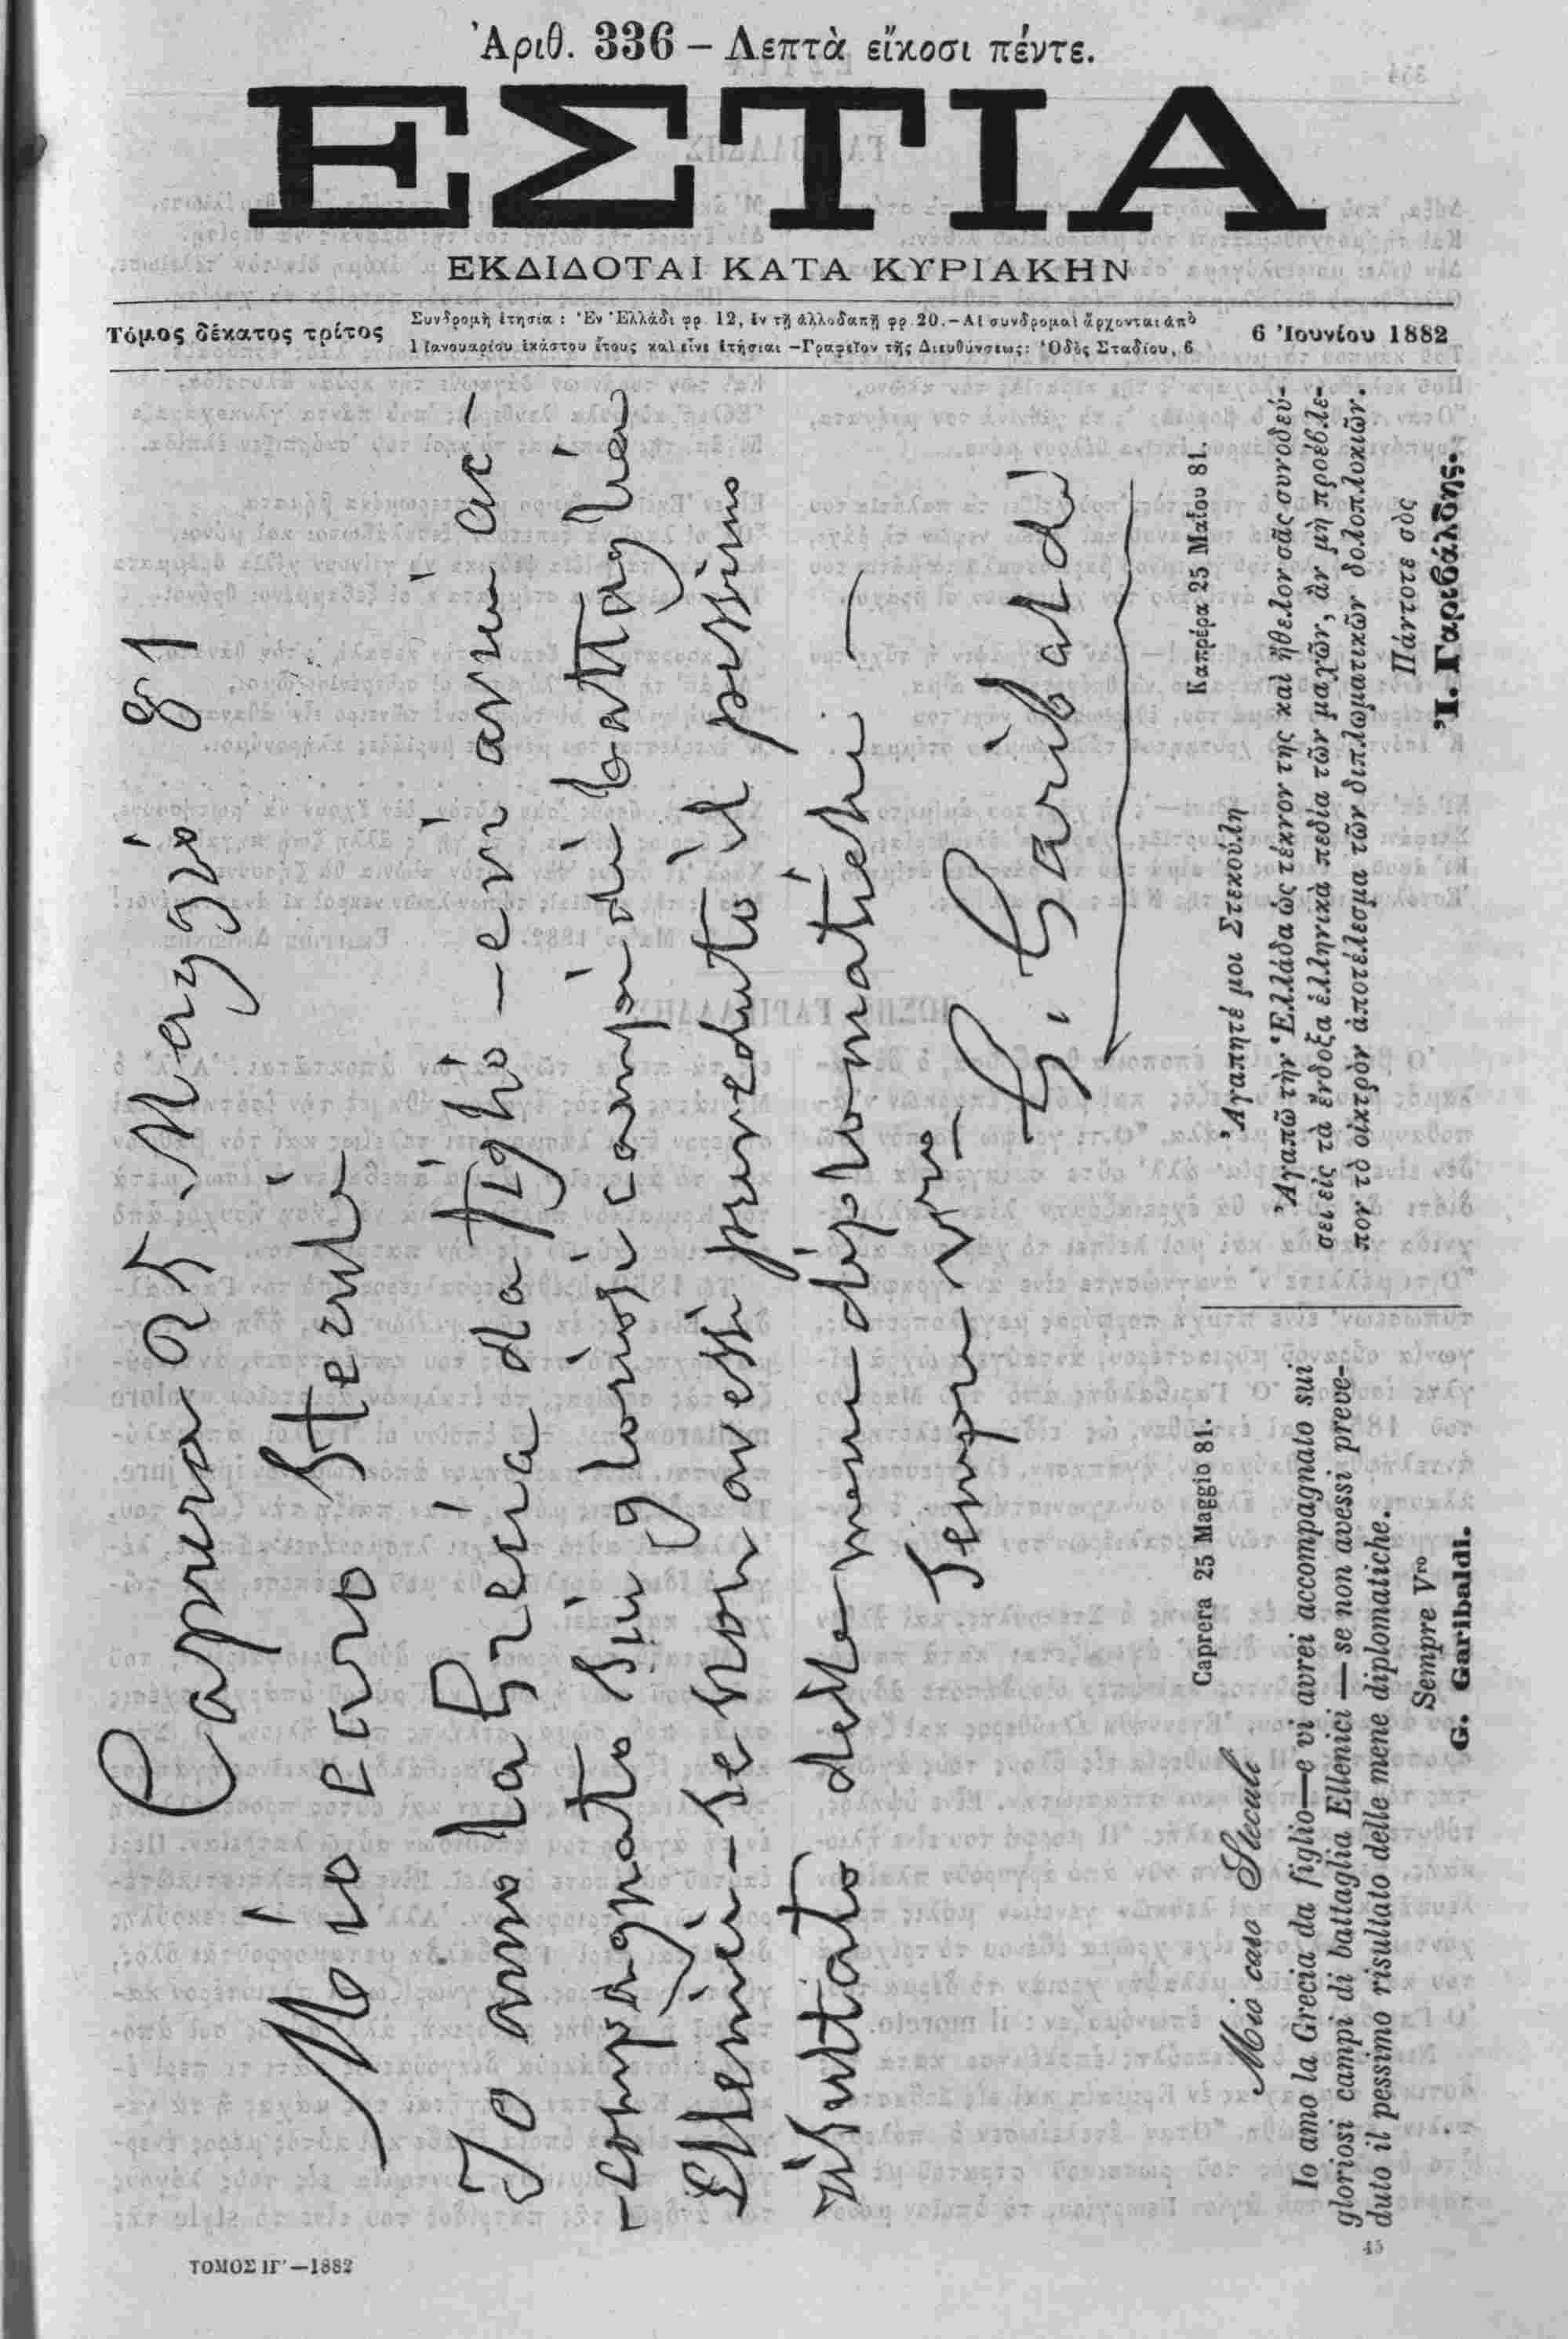 Ἀριθ. 336 — Λεπτὰ εἴκοσι πέντε.
ΕΣΤΙΑ
ΕΚΔΙΔΟΤΑΙ ΚΑΤΑ ΚΥΡΙΑΚΗΝ
Τόμος δέκατος τρίτος
Συνδρομὴ ἐτησία : Ἐν Ἑλλάδι φρ. 12, ἐν τῇ ἀλλοδαπῇ φρ. 20.—Αἱ συνδρομαὶ ἄρχονται ἀπὸ
1 Ιανουαρίου ἑκάστου ἔτους καὶ εἶνε ἐτήσιαι —Γραφεῖον τῆς Διευθύνσεως: Ὁδὸς Σταδίου, 6
6 Ἰουνίου 1882
Caprera 25 Maggio 81
Mio caro Steculi
Io amo la Grecia da figlio — e vi avrei ac-
-compagnato sui gloriosi campi di battaglia
Ellenici — se non avessi preveduto il pessimo
risultato delle mene diplomatiche —
Sempre vro —
G. Garibaldi
Caprera 25 Maggio 81.
Mio caro Steculi
Io amo la Grecia da figlio—e vi avrei accompagnato sui
gloriosi campi di battaglia Ellenici — se non avessi preve-
duto il pessimo risultato delle mene diplomatiche.
Sempre Vro
G. Garibaldi.
Καπρέρα 25 Μαΐου 81.
Ἀγαπητέ μοι Στεκούλη
Ἀγαπῶ τὴν Ἑλλάδα ὡς τέκνον της καὶ ἤθελον σᾶς συνοδεύ-
σει εἰς τὰ ἔνδοξα ἑλληνικὰ πεδία τῶν μαχῶν, ἂν μὴ προέβλε-
πον τὸ οἰκτρὸν ἀποτέλεσμα τῶν διπλωματικῶν δολοπλοκιῶν.
Πάντοτε σὸς
Ἰ. Γαριβάλδης.
ΤΟΜΟΣ ΙΓ′—1882
45